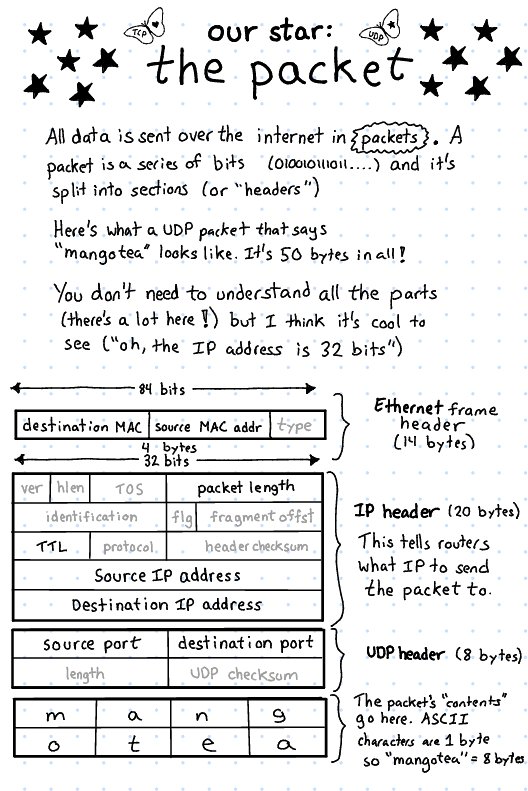 TCP
our star:
UDP
the packet
All data is sent over the internet in packets. A
packet is a series of bits (01001011011....) and it's
split into sections (or "headers")
Here's what a UDP packet that says
"mangotea" looks like. It's 50 bytes in all!
You don't need to understand all the parts
(there's a lot here!) but I think it's cool to
see ("oh, the IP address is 32 bits")
84 bits
destination MAC source MAC addr type
Ethernet frame
header
(14 bytes)
4 bytes
32 bits
ver hlen TOS packet length
identification flg fragment offst
TTL protocol header checksum
Source IP address
Destination IP address
IP header (20 bytes)
This tells routers
what IP to send
the packet to.
source port destination port
length UDP checksum
UDP header (8 bytes)
m a n g
o t e a
The packet's "contents"
go here. ASCII
characters are 1 byte
so "mangotea" = 8 bytes